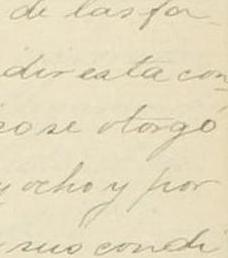 de las for
dir esta con-
co se otorgó
y ocho y por
sus condi